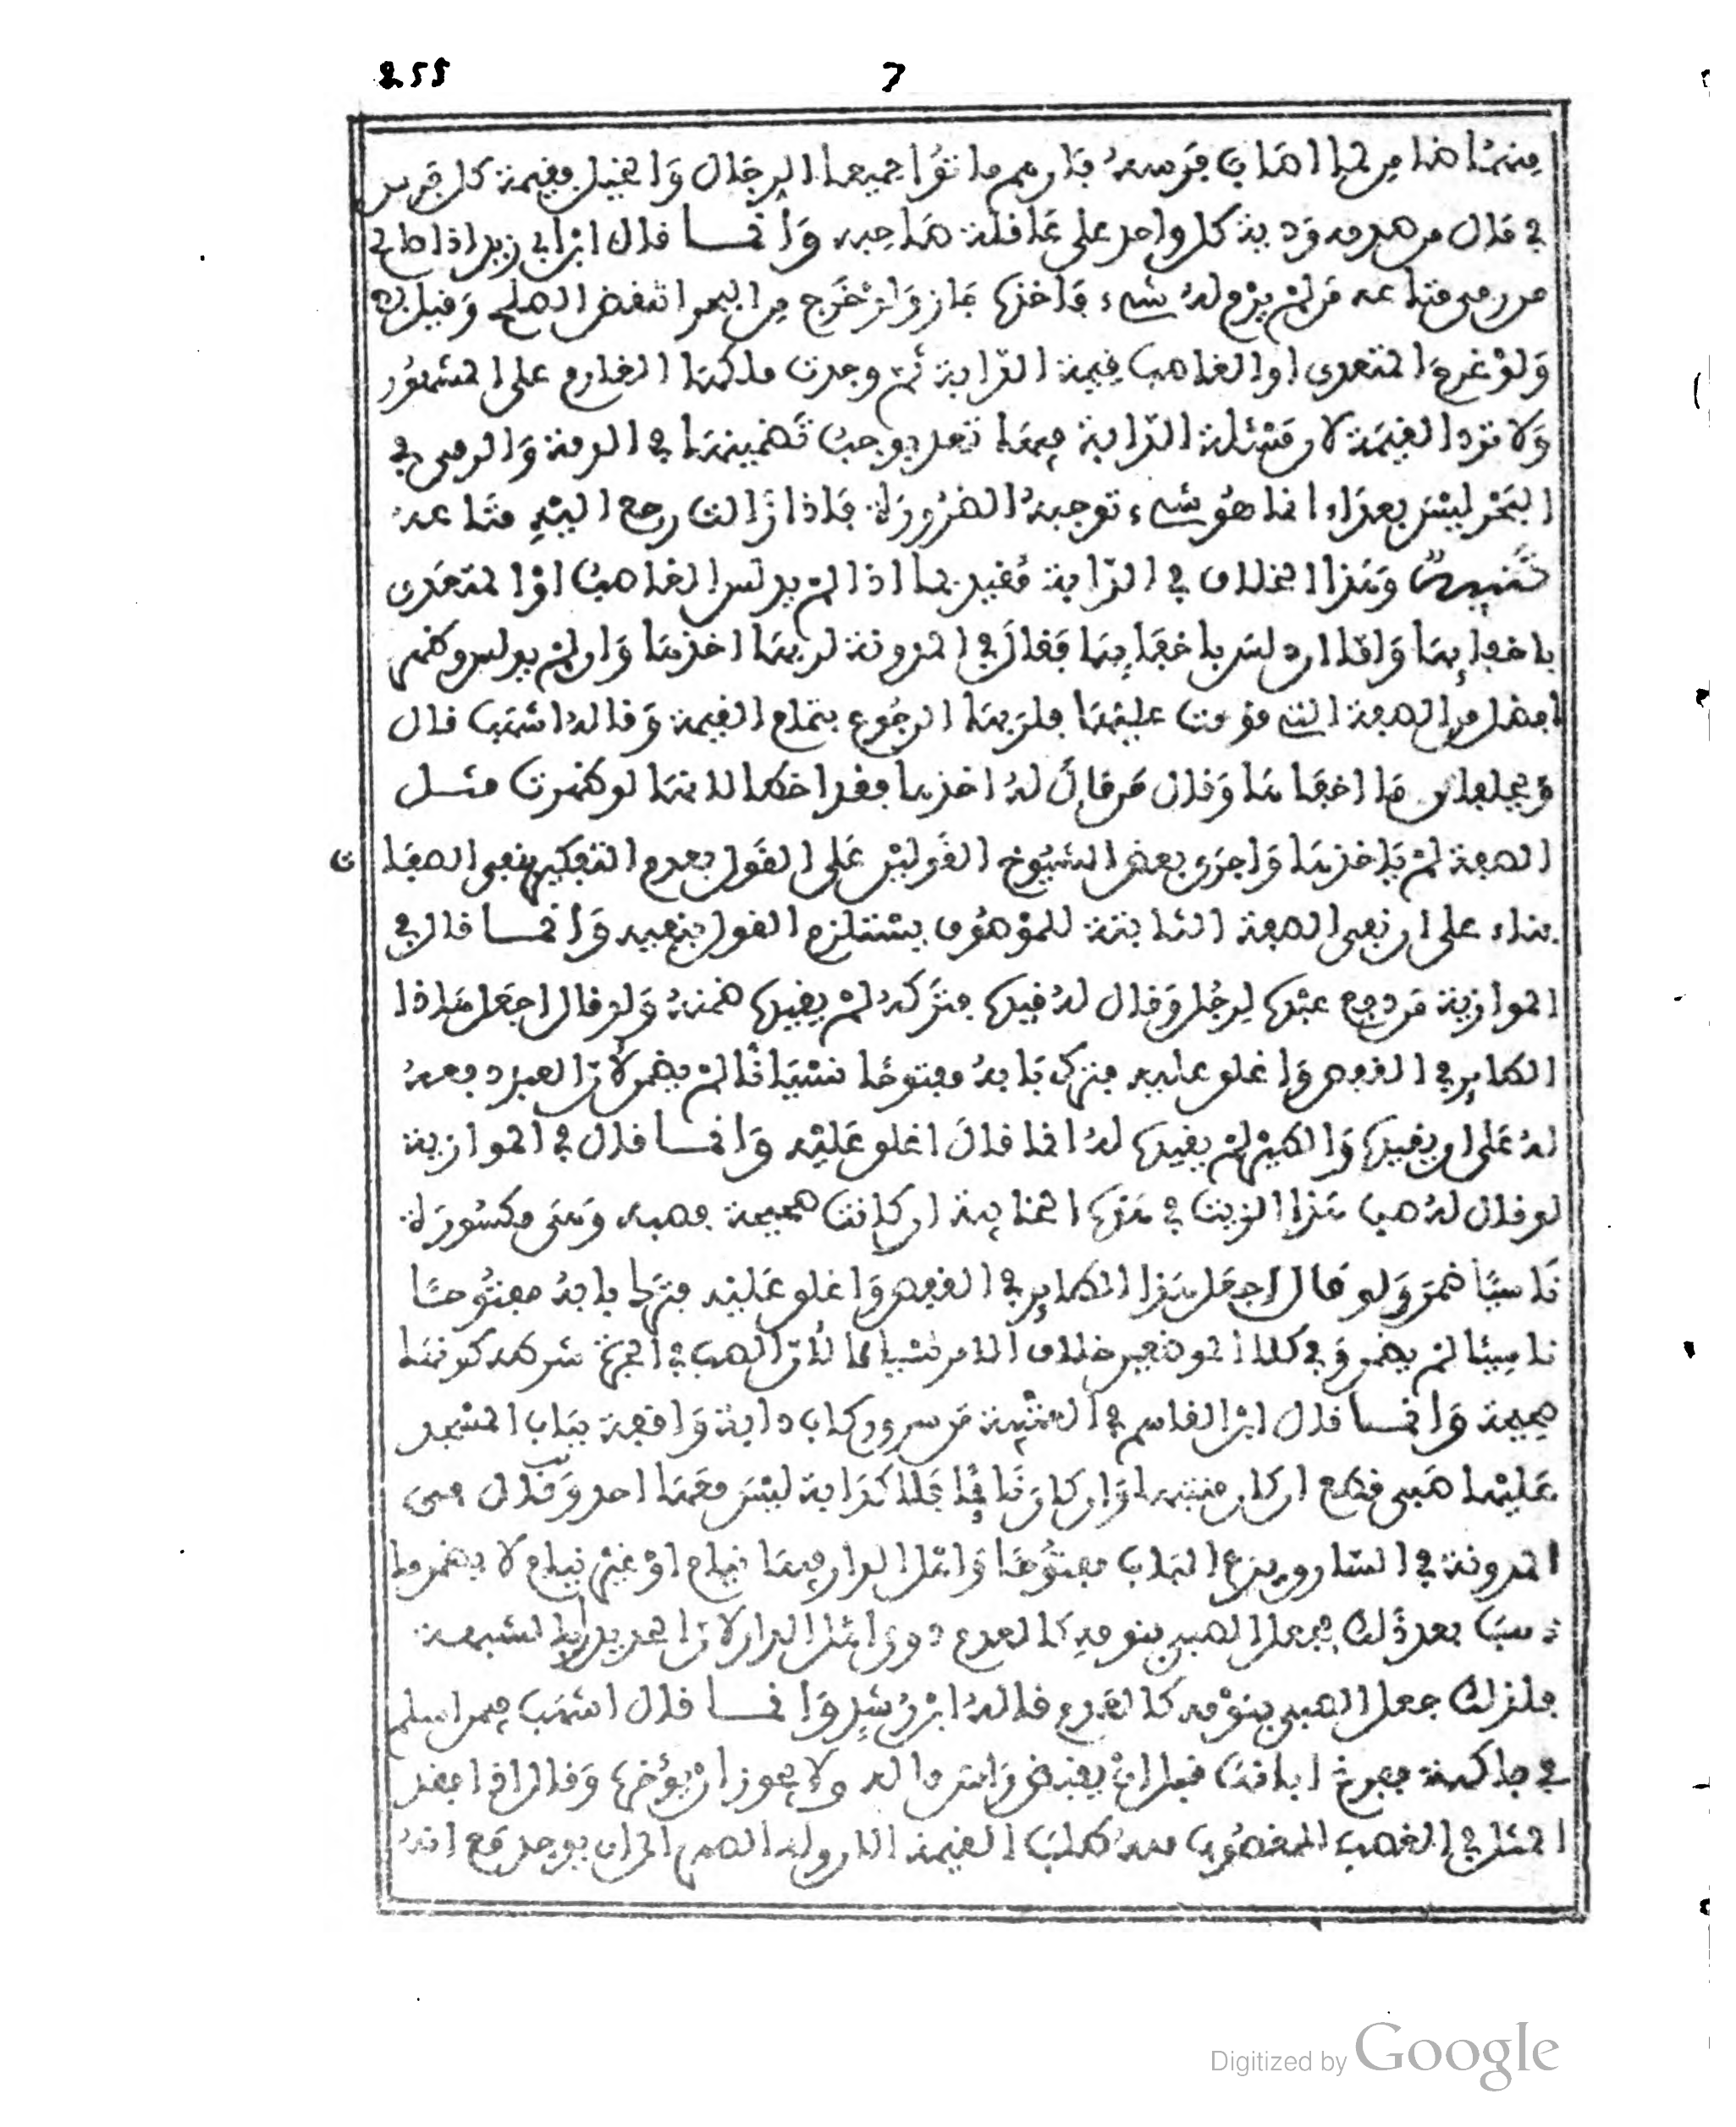 255 7
منهما ضامن لما اصاب فرسه فان هم ماتوا جميعا الرجال والخيل فقيمة كل فرس
في مال من صدمه ودية كل واحد على عاقلة صاحبه وانما قال ابن ابي زيد اذا صالح
من رمى متاعه من لم يرم له شيء فاخذها جاز ولو خرج من البحر انتقض الصلح
ولو غرم المتعدى او الغاصب قيمة الدابة ثم وجدت ملكها الغارم على المشهور
ولا ترد القيمة لان مسئلة الدابة فيها تعد يوجب تضمينها في الذمة والرمى في
البحر ليس بعداء انما هو شيء توجبه الضرورة فاذا زالت رجع اليه متاعه
تنبيه وهذا الخلاف في الدابة مقيد بما اذا لم يدلس الغاصب او المتعدى
باخفايها واما ان دلس باخفايها فقال في المدونة لربها اخذها وان لم يدلس وظهر
افضل من الصفة التي قومت عليها فلربها الرجوع بتمام القيمة وقاله اشهب قال
ويحلف ما اخفاها وقال من قال له اخذها فقد اخطا لانها لو ظهرت مثل
الصفة لم ياخذها واجرى بعض الشيوخ القولين على القول بعدم التفكير بنفي الصفا
ت
بناء على ان نفي الصفة الثابتة للموصوف يستلزم القول بنفيه وانما قال في
الموازية من دفع عبدها لرجل وقال له قيدها فتركه لم يقيدها ضمنه ولو قال اجعل هاذا
الطاير في القفص واغلق عليه فترك بابه مفتوحا نسيانا لم يضمن لان العبد دفعه
له على ان يقيدها والطير لم يقيدها له انما قال اغلق عليه وانما قال في الموازية
لو قال له صب هذا الزيت في هذها الخابية ان كانت صحيحة فصبه وهى مكسورة
ناسيا ضمن ولو قال اجعل هذا الطاير في القفص واغلق عليه فترك بابه مفتوحا
ناسيئا لم يضمن وفي كلا الموضعين خلاف الامر نسيانا لان الصب في الجرة شرطه كونها
صحيحة وانما قال ابن القاسم في العتبية من سرق ركاب دابة واقفة بباب المسجد
عليها صبى قطع ان كان منتبها وان كان نايما فلا كدابة ليس معها احد وقال فى
المدونة في السارق يدع الباب مفتوحا واهل الدار فيها نيام او غير نيام لا يضمن ما
ذهب بعد ذلك فجعل الصبى بنومه كالعدم دون اهل الدار لان
فلذلك جعل الصبى بنومه كالعدم قاله ابن رشد وانما قال اشهب فيمن اسلم
في فاكهة ففرغ ابانها قبل ان يقبض راس ماله ولا يجوز ان يؤخرها وقال اذا فقد
المثل في الغصب المغصوب منه طلب القيمة الان وله الصبر الى ان يوجد مع انه